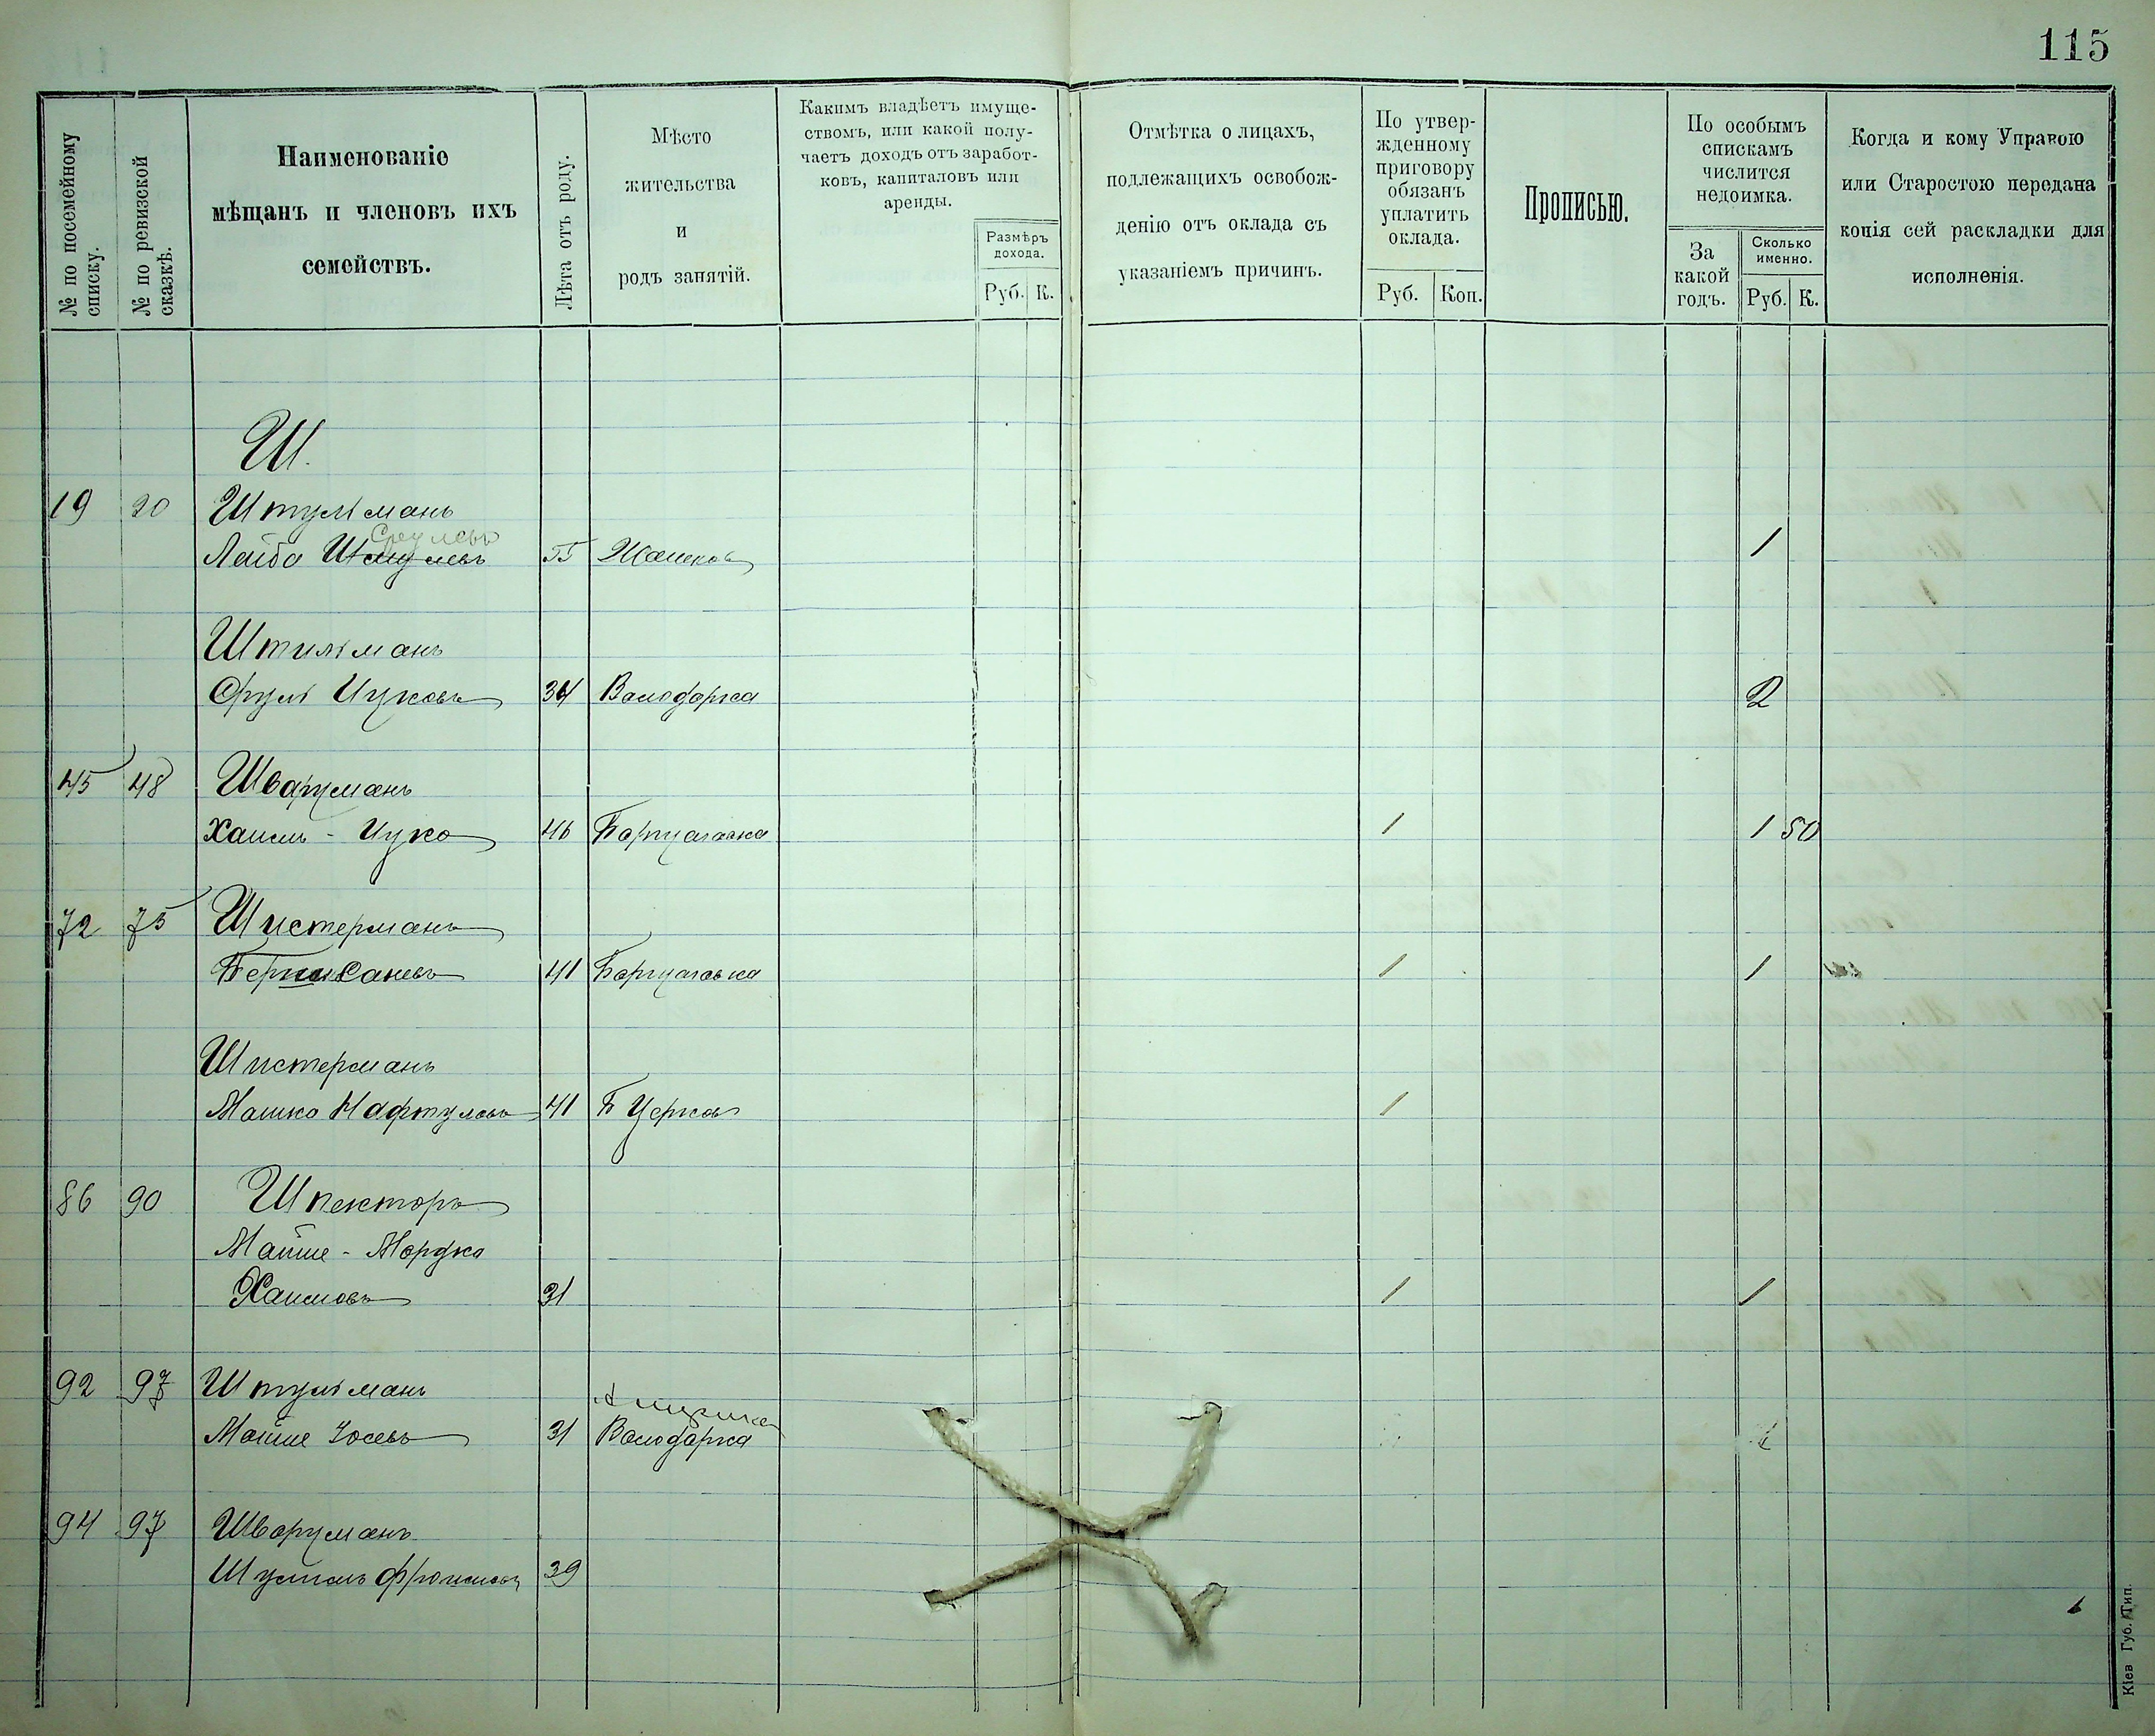 115
№ по посемейному списку.
№ по ревизской сказкѣ.
Наименованіе
мѣщанъ и членовъ ихъ
семействъ.
Лѣта отъ роду.
Мѣсто
жительства
и
родъ занятій.
Какимъ владѣетъ имуще-
ствомъ, или какой полу-
чаетъ доходъ отъ заработ-
ковъ, капиталовъ или
аренды.
Размѣръ
дохода.
Руб. К.
Отмѣтка о лицахъ,
подлежащихъ освобож-
денію отъ оклада съ
указаніемъ причинъ.
По утвер-
жденному
приговору
обязанъ
уплатить
оклада.
Руб. Коп.
Прописью.
По особымъ
спискамъ
числится
недоимка.
За
какой
годъ.
Сколько
именно.
Руб. К.
Когда и кому Управою
или Старостою передана
копія сей раскладки для
исполненія.
Ш.
19 20 Штульманъ
Срулевъ
Лейба 55 1
Штильманъ
Сруль Ицковъ 34 Володарка 2
45 48 Шварцманъ
Хаимъ - Ицко 46 1 1 50
72 75 Шистерманъ
41 1 1
Шистерманъ
Мошко Нафтулевъ 41 Б Церква 1
86 90 Шпекторъ
Мойше - Мордко
Хаимовъ 31 1 1
92 97 Штульманъ
Америка
Мойше Іосевъ 31 Володарка
94 97 Шварцманъ
Шулимъ Фроимовъ 39
Кіев Губ. Тип.